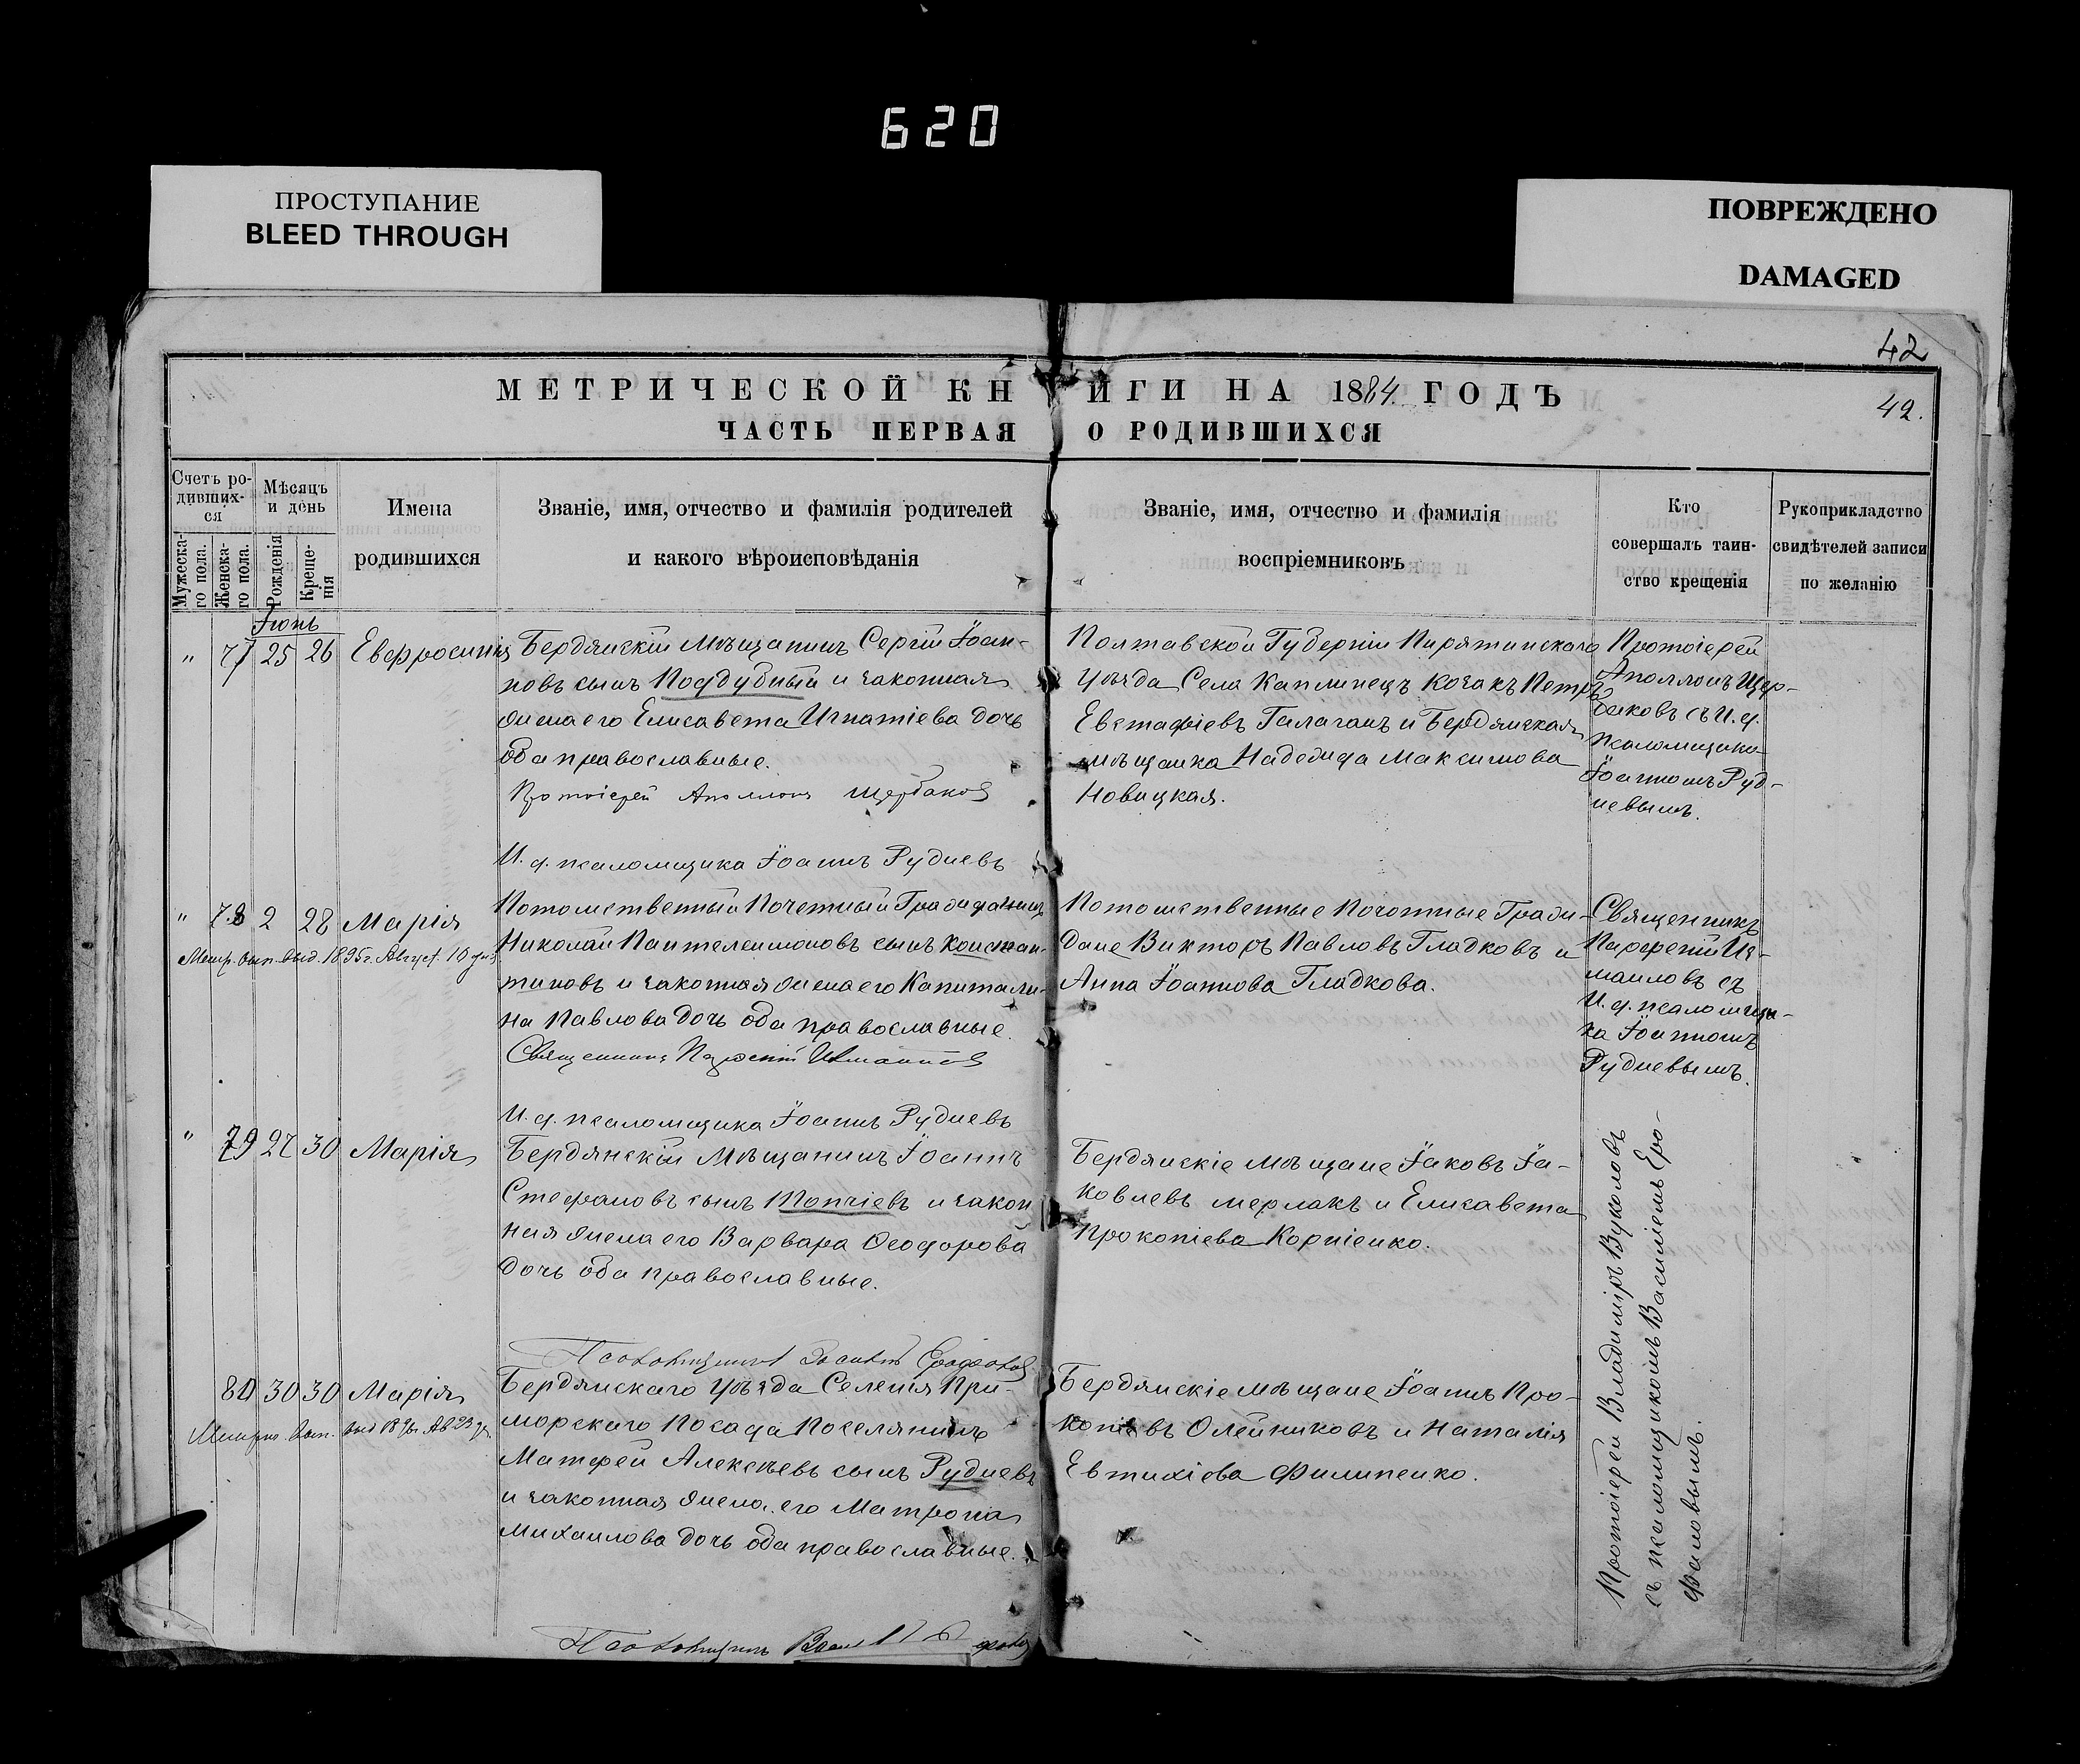 620
ПРОСТУПАНИЕ
BLEED THROUGH
ПОВРЕЖДЕНО
DAMAGED
42
МЕТРИЧЕСКОЙ КНИГИ НА 1884 ГОДЪ
42.
ЧАСТЬ ПЕРВАЯ О РОДИВШИХСЯ
Счетъ ро-
дивших-
ся
Мужеска-
го пола.
Женска-
го пола.
Мѣсяцъ
и день
Рожденія
Креще-
нія
Имена
родившихся
Званіе, имя, отчество и фамилія родителей
и какого вѣроисповѣданія
Званіе, имя, отчество и фамилія
воспріемниковъ
Кто
совершалъ таин-
ство крещенія
Рукоприкладство
свидѣтелей записи
по желанію
Іюнь
" 77 25 26 Евфросинія
Бердянскій Мѣщанинъ Сергій Іоан-
новъ сынъ Поддубный и законная
жена его Елисавета Игнатіева дочь
оба православные.
Протоіерей Аполлонъ Щербаковъ
И. д. псаломщика Іоаннъ Рудневъ
Полтавской Губерніи Пирятинскаго
Уѣзда Села Каплинецъ Козакъ Петръ
Евстафіевъ Галаганъ и Бердянская
мѣщанка Надежда Максимова
Новицкая.
Протоіерей
Аполлонъ Щер-
баковъ съ И. д.
псаломщика
Іоанномъ Руд-
невымъ.
" 78 2 28 Марія
Метр. вып. выд. 1895 г. Август. 10 дня
Потомственный Почетный Гражданинъ
Николай Пантелеимоновъ сынъ Констан-
тиновъ и законная жена его Капитали-
на Павлова дочь оба православные.
Священникъ Парѳеній Измаиловъ
И. д. псаломщика Іоаннъ Рудневъ
Потомственные Почотные Граж-
дане Викторъ Павловъ Гладковъ и
Анна Іоаннова Гладкова.
Священникъ
Парфеній Из-
маиловъ съ
И. д. псаломщи-
ка Іоанномъ
Рудневымъ.
" 79 27 30 Марія
Бердянскій Мѣщанинъ Іоаннъ
Стефановъ сынъ Топчіевъ и закон
ная жена его Варвара Ѳеодорова
дочь оба православные.
Псаломщикъ Василій Ерофаловъ
Бердянскіе мѣщане Іаковъ Іа-
ковлевъ мерлакъ и Елисавета
Прокопіева Корніенко.
80 30 30 Марія
Метрич. вып.
Бердянскаго Уѣзда Селенія При-
морскаго Посада Поселянинъ
Матфей Алексѣевъ сынъ Рудневъ
и законная жена его Матрона
Михаилова дочь оба православные.
Псаломщикъ
Бердянскіе мѣщане Іоаннъ Про-
копіевъ Олейниковъ и Наталія
Евтихіева Филипенко.
Протоіерей Владиміръ Вуколовъ
съ псаломщикомъ Василіемъ Еро-
фаловымъ.